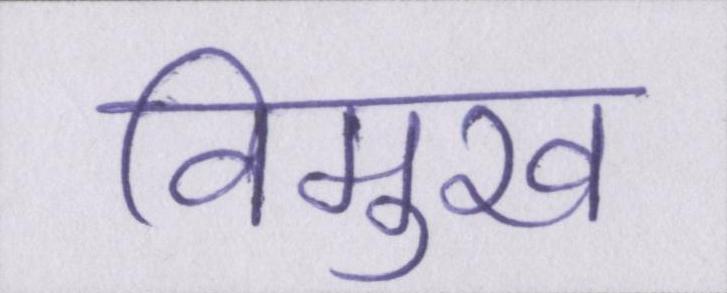 विमुख